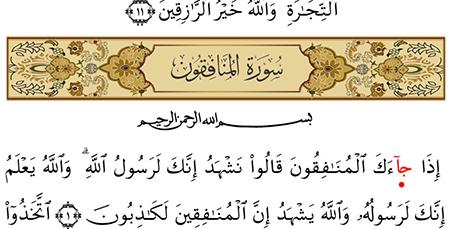 التِّجَارَةِ وَاللَّهُ خَيْرُ الرَّازِقِينَ ﴿١١﴾
سُورَةُ الْمُنَافِقُونَ
بسم الله الرحمن الرحيم
إِذَا جَآءَكَ الْمُنَافِقُونَ قَالُوا۟ نَشْهَدُ إِنَّكَ لَرَسُولُ اللَّهِ ۗ وَاللَّهُ يَعْلَمُ
إِنَّكَ لَرَسُولُهُۥ وَاللَّهُ يَشْهَدُ إِنَّ الْمُنَافِقِينَ لَكَاذِبُونَ ﴿١﴾ اتَّخَذُوٓا۟